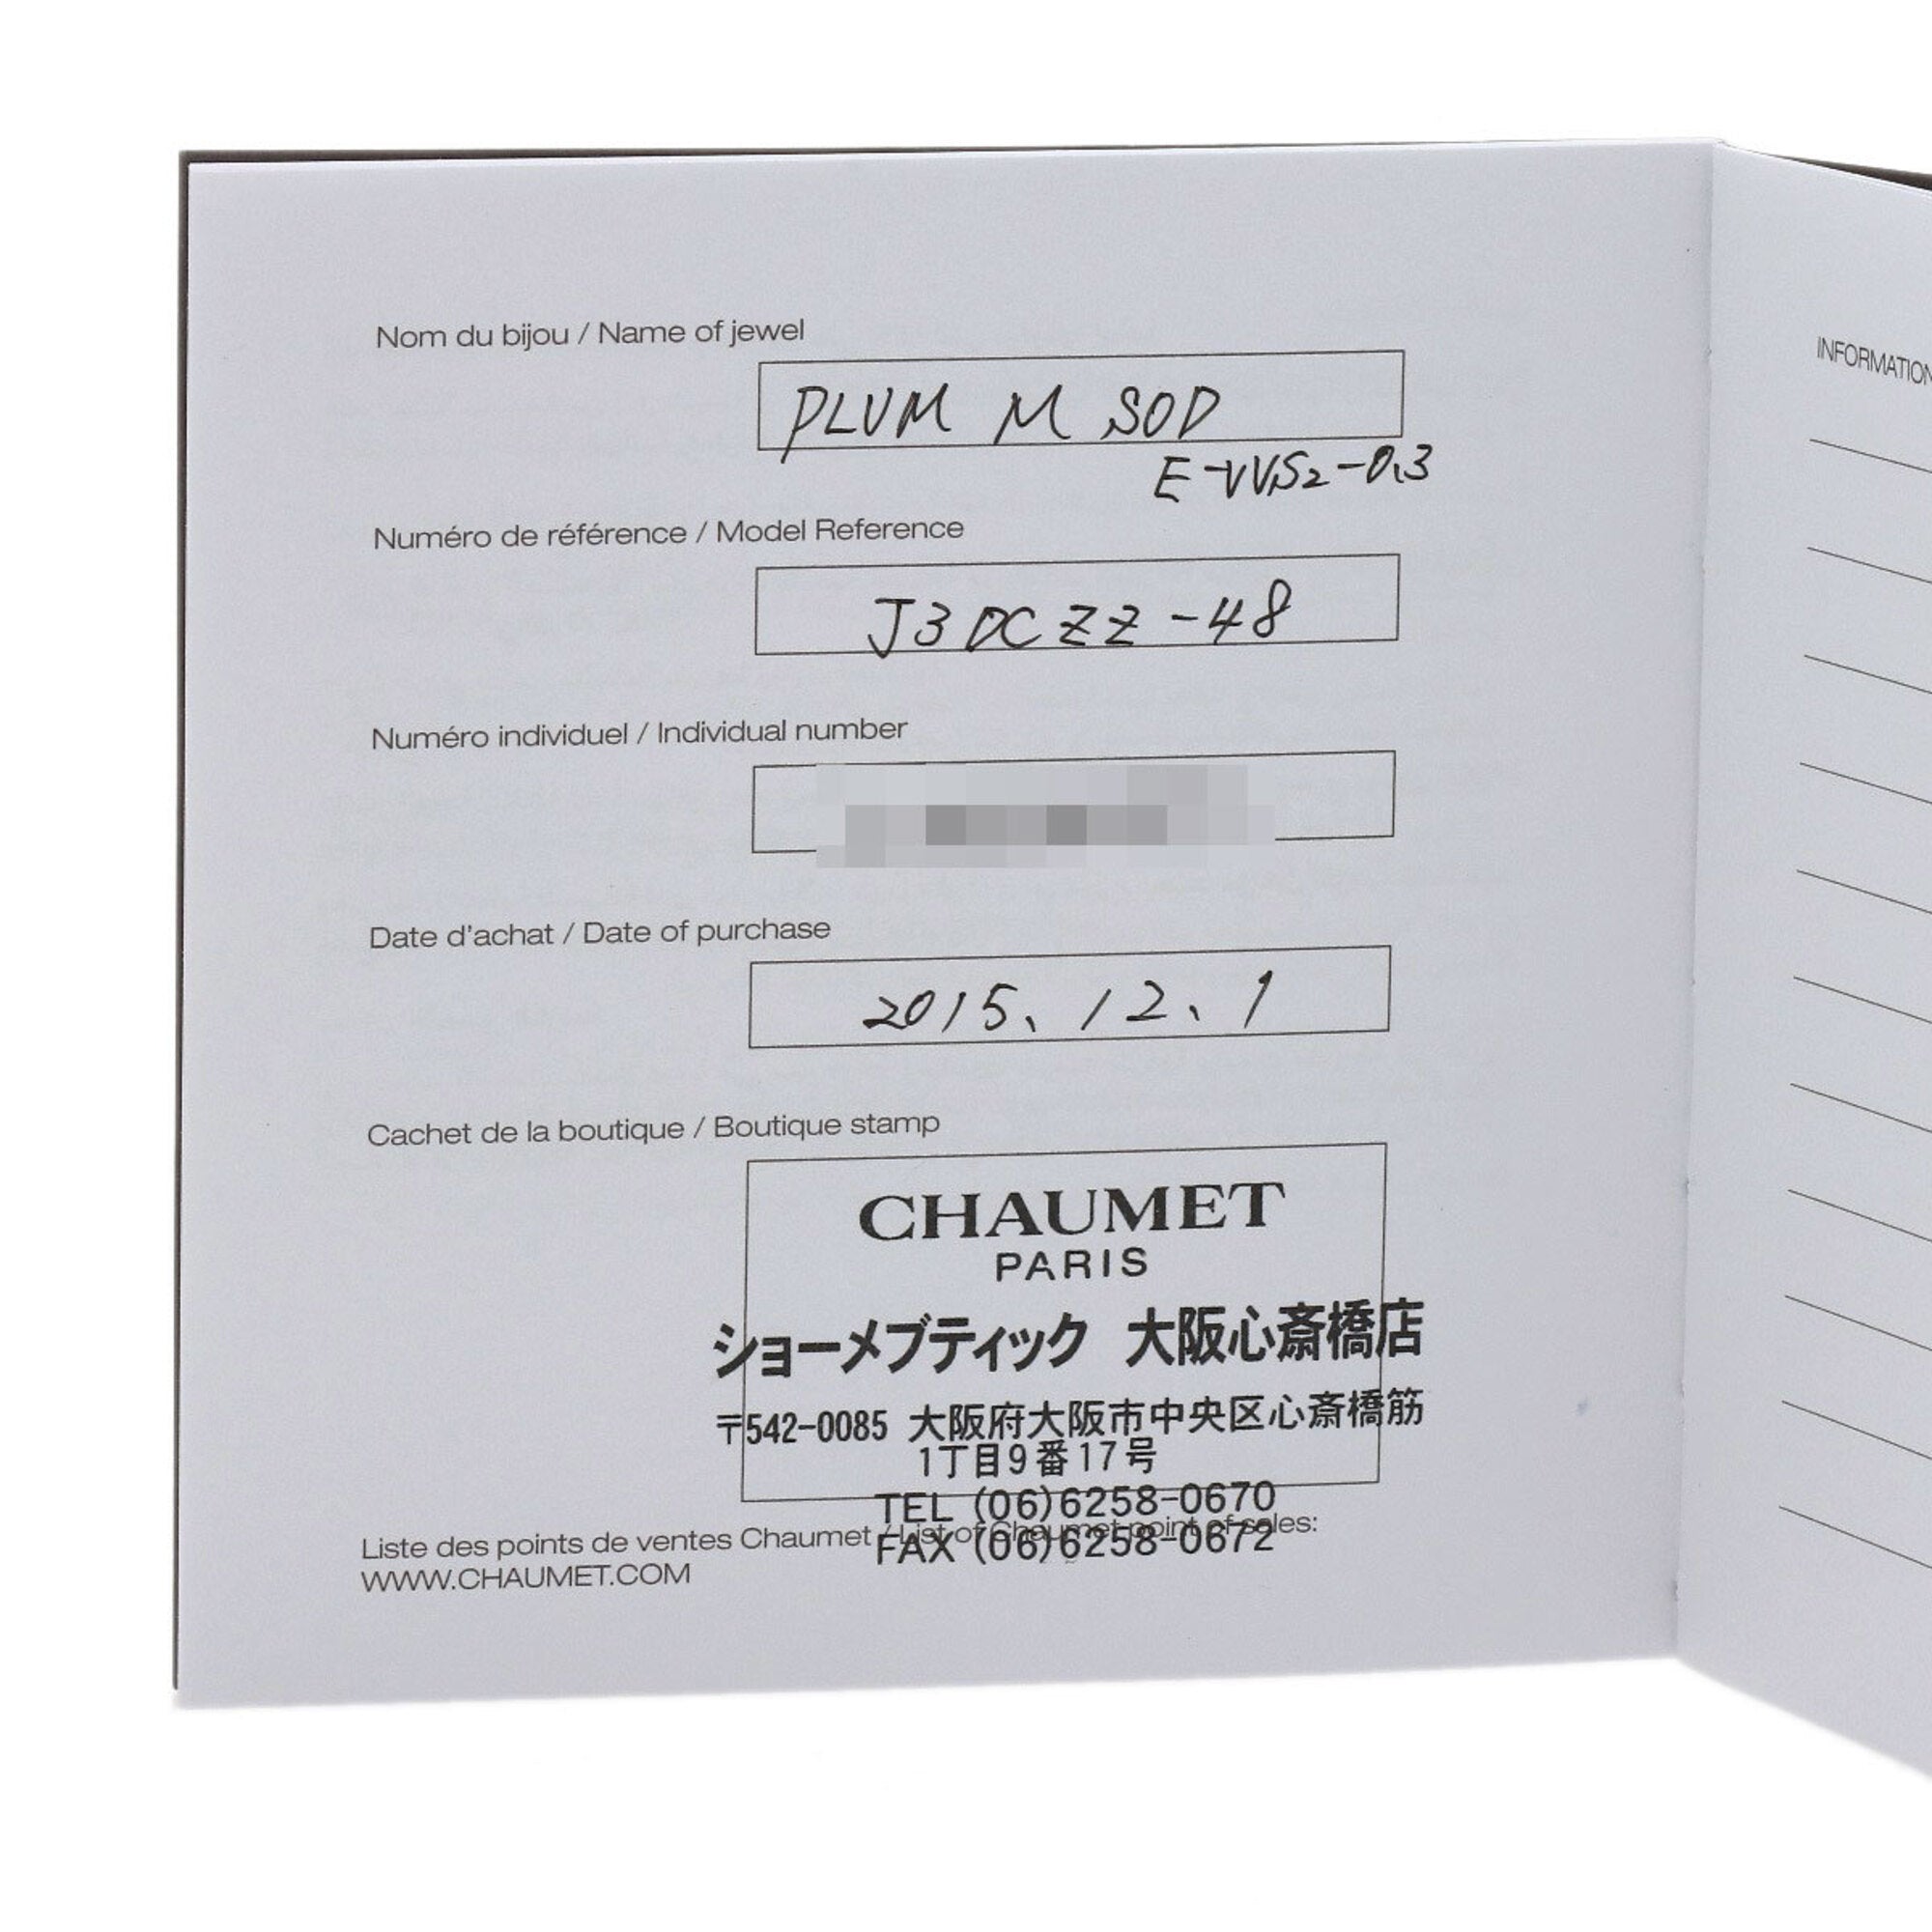 Nom du bijou / Name of jewel
PLUM M SOD
E-VVS2-0.3
Numéro de référence / Model Reference
J3DCZZ-48
Numéro individuel / Individual number
Date d'achat / Date of purchase
2015、12、1
Cachet de la boutique / Boutique stamp
CHAUMET
PARIS
ショーメブティック 大阪心斎橋店
〒542-0085 大阪府大阪市中央区心斎橋筋
1丁目9番17号
TEL (06)6258-0670
Liste des points de ventes Chaumet / List of Chaumet point of sales:
FAX (06)6258-0672
WWW.CHAUMET.COM
INFORMATION